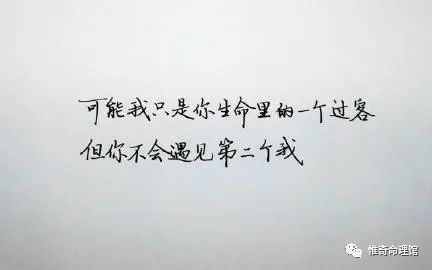 可能我只是你生命里的一个过客
但你不会遇见第二个我
惟奇命理馆